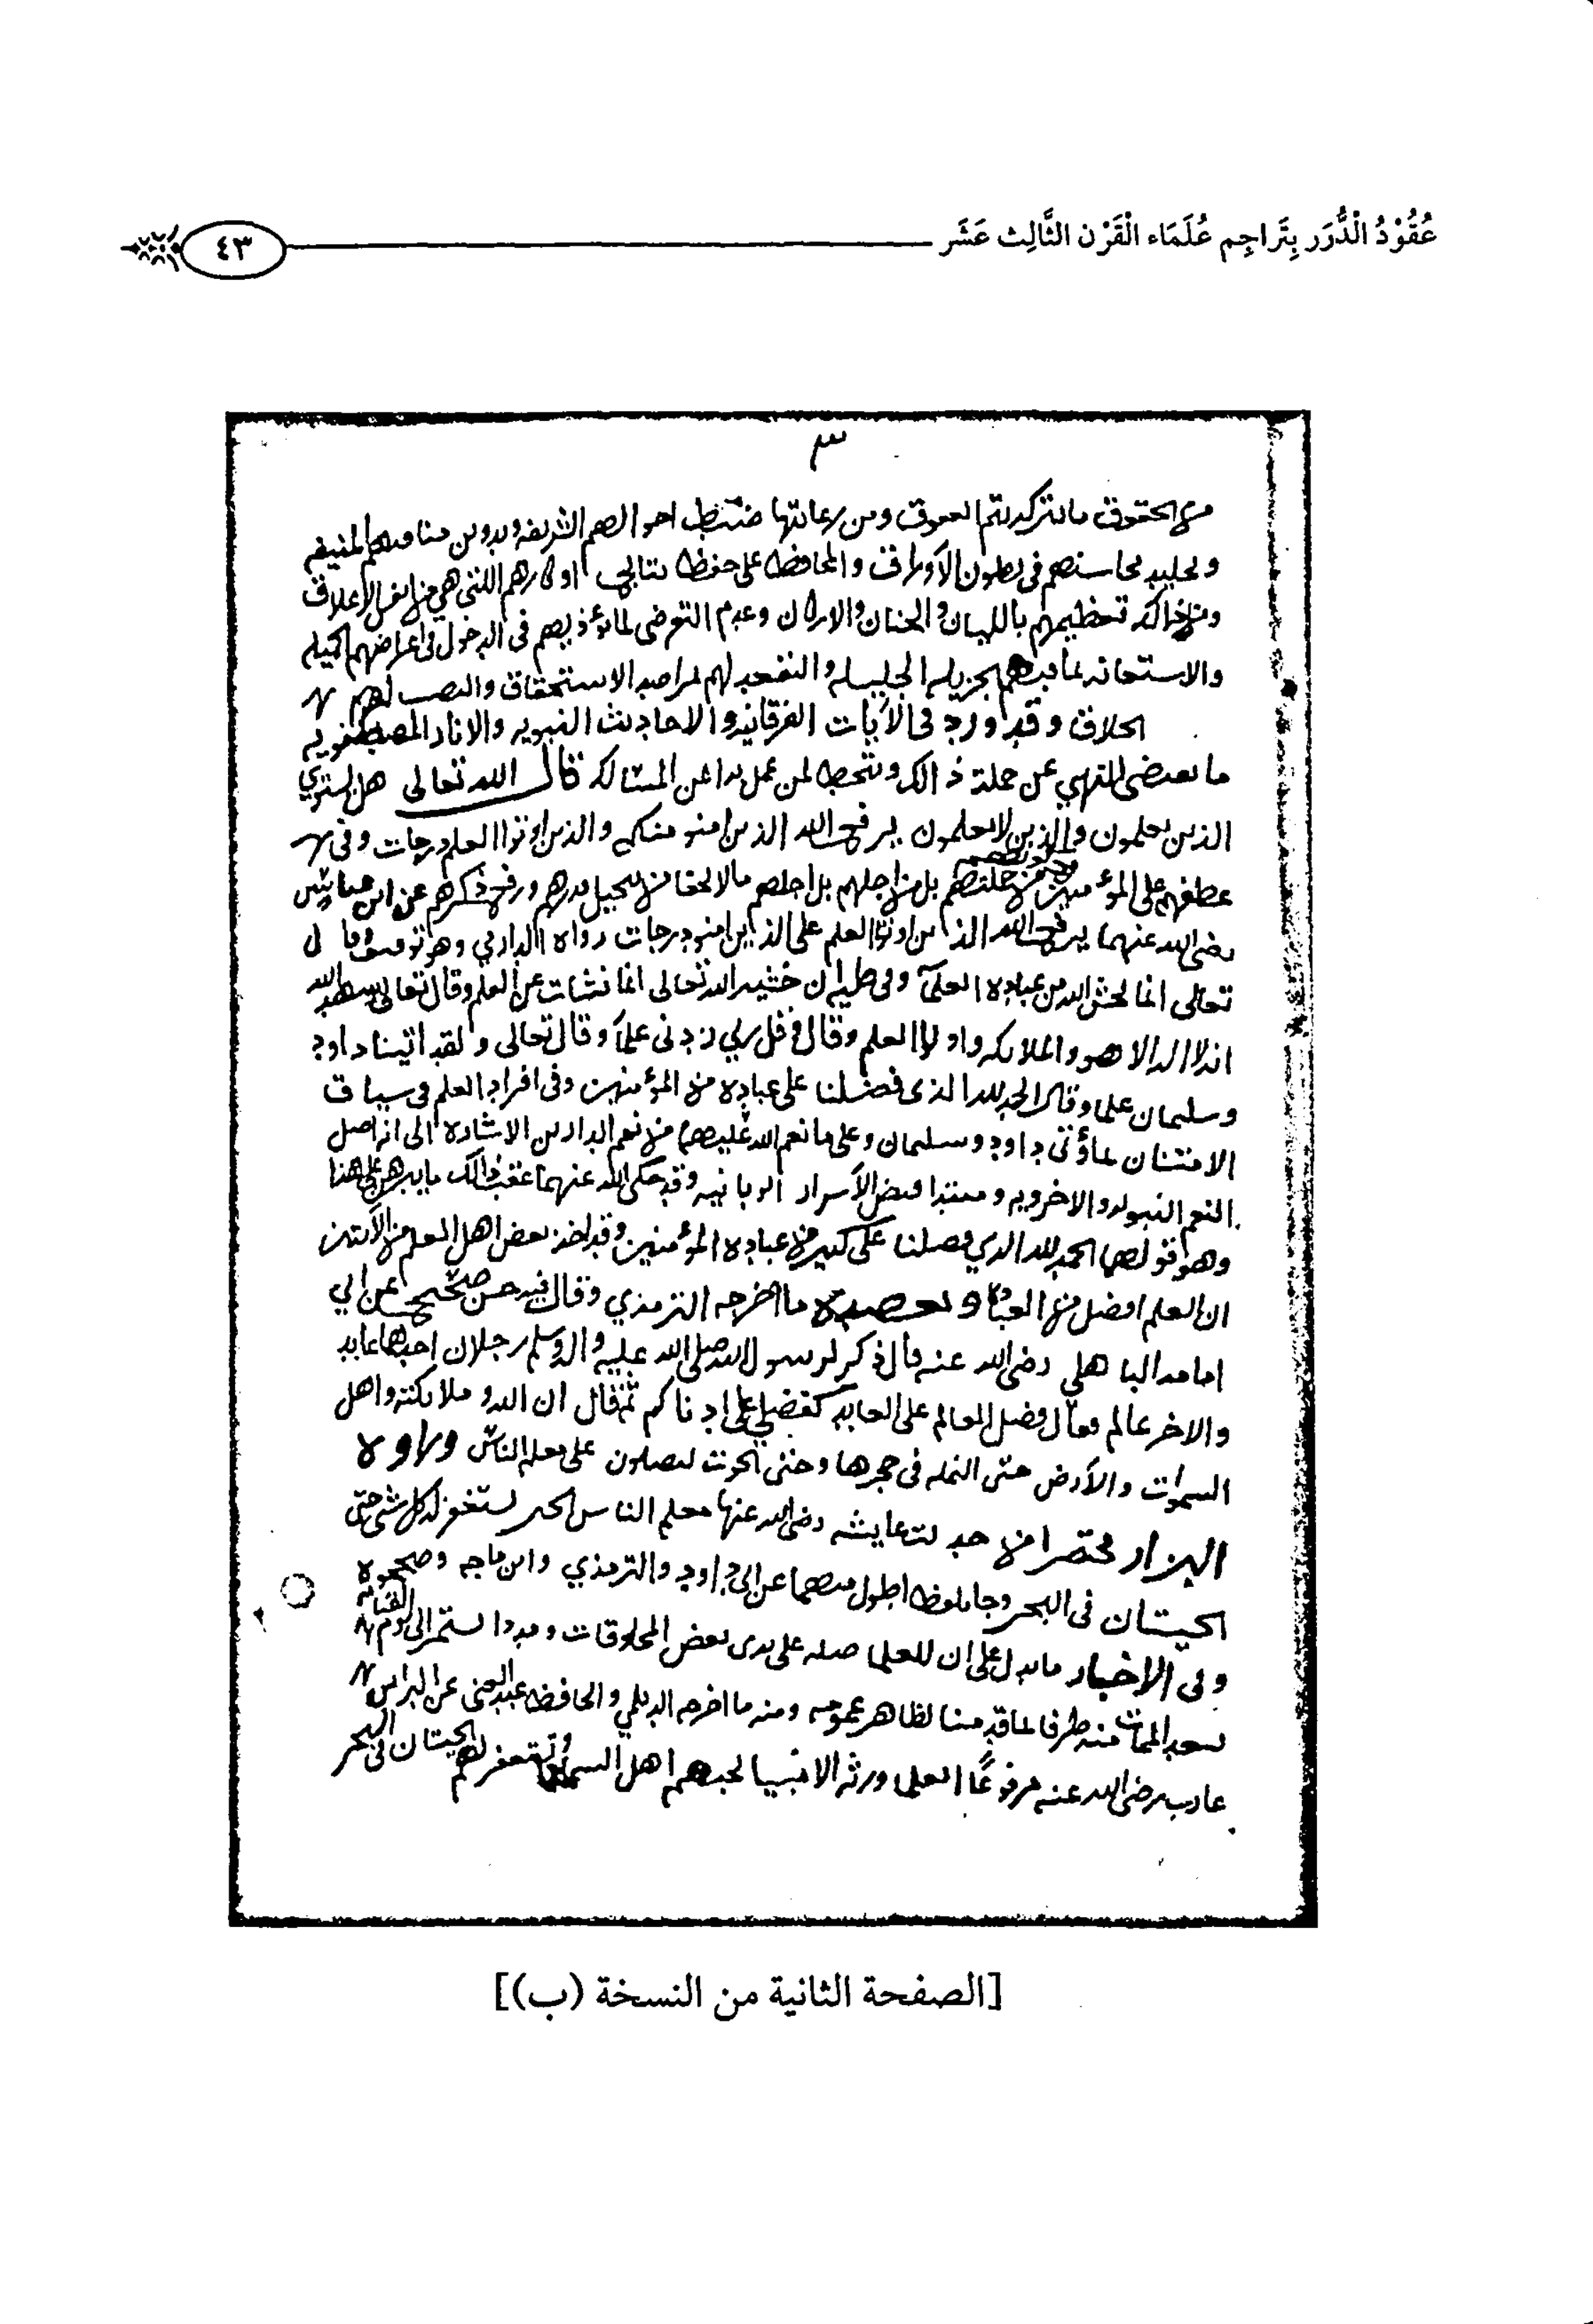 عُقُوْدُ الْدُّرَر بِتَراجِم عُلَمَاء الْقَرْن الثَّالِث عَشَر
٤٣
٣
من الحقوق ما بتركه يتم العقوق ومن رعايتها ضبط احوالهم الشريفه وتدوين مناقبهم المنيفه
وتخليد محاسنهم في بطون الأوراق والمحافظه على حفظ نتايج افكارهم اللتي هي من انفس الاعلاق
تعظيمهم باللسان والجنان والاركان وعدم التعرض لما يؤذيهم في الدخول في اعراضهم
والاستهانه بما فيهم الجليله والتقعد لهم لمراصد الاستحقاق والنصب لهم
الخلاق وقد ورد في الآيات الفرقانيه والاحاديث النبويه والاثار المصطفويه
ما يقضي النهي عن جملة ذالك قال الله تعالى هل يستوي
الذين يعلمون والذين لا يعلمون يرفع الله الذين امنو منكم والذين اوتوا العلم درجات وفي
عطفهم على المؤمنين من جملتهم بل من اجلهم بل اجلهم ما لا يخفا من تبجيل قدرهم ورفع ذكرهم عن ابن عباس
رضي الله عنهما يرفع الله الذين اوتوا العلم على الذين امنو درجات رواه الدارمي وهو توسيف وقال
تعالى انما يخشى الله من عباده العلمآ وفي طيه ان خشيه الله تعالى انما نشات عن العلم وقال تعالى شهد الله
انه لا اله الا هو والملائكه واولوا العلم وقال وقل ربي زدني علمآ وقال تعالى ولقد اتينا داود
وسليمان علما وقالا الحمد لله الذي فضلنا على عباده من المؤمنين وفي افراد العلم في سياق
الامتنان بما أؤتى داود وسليمان وعلى ما نعم الله عليهما من نعم الدارين الاشاره الى انه اصل
النعم الدنيويه والاخرويه ومبتدا فيض الأسرار الربانيه وقد حكى الله عنهما عقب ذالك ما يبرهن على هذا
وهو قولهما الحمد لله الذي فضلنا على كثير من عباده المؤمنين وقد اخذ بعض اهل العلم من الآيتين
ان العلم افضل من العباده و يعضده ما اخرجه الترمذي وقال فيه حسن صحيح عن ابي
امامه الباهلي رضي الله عنه قال ذكر لرسول الله صلى الله عليه واله وسلم رجلان احدهما عابد
والاخر عالم فقال فضل العالم على العابد كفضلي على ادناكم ثم قال ان الله وملائكته واهل
السموات والأرض حتى النمله في جحرها وحتى الحوت ليصلون على معلم الناس ورواه
البزار مختصرا من حديث عايشه رضي الله عنها معلم الناس الخير يستغفر له كل شئ حتى
الحيتان في البحر وجا بلفظ اطول منهما عن ابي داود والترمذي وابن ماجه وصححوه
وفي الاخبار ما يدل على ان للعلما صله على مدى بعض المخلوقات ومددا يستمر الى يوم القيامه
بعد الممات منه طرفا لما قدمنا لظاهر عمومه ومنه ما اخرجه الديلمي والحافظ عبد الغني عن البراس
عازب رضي الله عنه مرفوعًا العلما ورثة الانبيا يحبهم اهل السما وتستغفر لهم الحيتان في البحر
[الصفحة الثانية من النسخة (ب)]